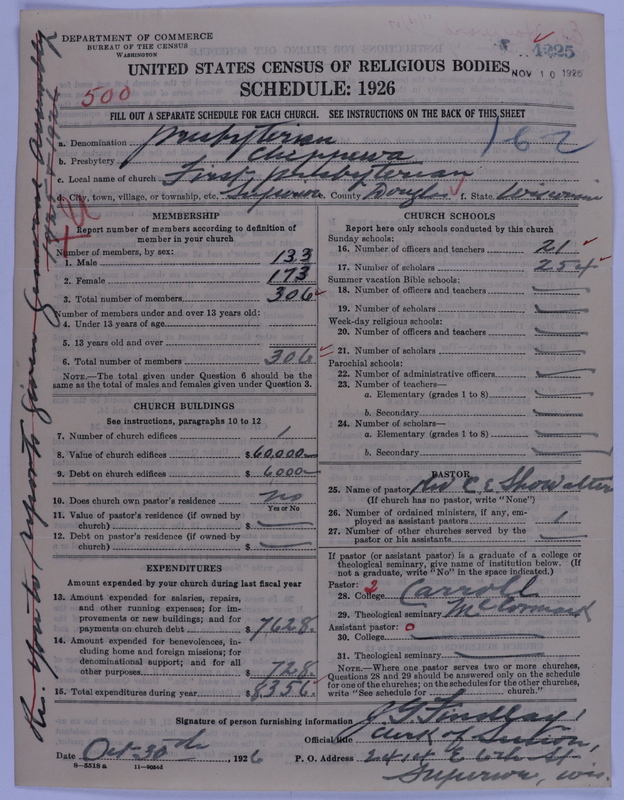 DEPARTMENT OF COMMERCE
BUREAU OF THE CENSUS
WASHINGTON
1225
NOV 10 1926
UNITED STATES CENSUS OF RELIGIOUS BODIES
SCHEDULE: 1926
500
FILL OUT A SEPARATE SCHEDULE FOR EACH CHURCH. SEE INSTRUCTIONS ON THE BACK OF THIS SHEET
162
a. Denomination Presbyterian
b. Presbytery Chippewa
c. Local name of church First Presbyterian
d. City, town, village, or township, etc. Superior e. County Douglas f. State Wisconsin
MEMBERSHIP
Report number of members according to definition of
member in your church
Number of members, by sex:
1. Male 133
2. Female 173
3. Total number of members 306
Number of members under and over 13 years old:
4. Under 13 years of age
5. 13 years old and over
6. Total number of members 306
NOTE.—The total given under Question 6 should be
same as the total of males and females given under Question 3.
CHURCH BUILDINGS
See instructions, paragraphs 10 to 12
7. Number of church edifices 1
8. Value of church edifices $60,000
9. Debt on church edifices $6000
10. Does church own pastor's residence no
Yes or No
11. Value of pastor's residence (if owned by
church) $
12. Debt on pastor's residence (if owned by
church) $
EXPENDITURES
Amount expended by your church during last fiscal year
13. Amount expended for salaries, repairs,
and other running expenses; for im-
provements or new buildings; and for
payments on church debt $7628.
14. Amount expended for benevolences, in-
cluding home and foreign missions; for
denominational support; and for all
other purposes $728
15. Total expenditures during year $8356.
CHURCH SCHOOLS
Report here only schools conducted by this church
Sunday schools:
16. Number of officers and teachers 21
17. Number of scholars 254
Summer vacation Bible schools:
18. Number of officers and teachers
19. Number of scholars
Week-day religious schools:
20. Number of officers and teachers
21. Number of scholars
Parochial schools:
22. Number of administrative officers
23. Number of teachers—
a. Elementary (grades 1 to 8)
b. Secondary
24. Number of scholars—
a. Elementary (grades 1 to 8)
b. Secondary
PASTOR
25. Name of pastor Rev C. E. Showalter
(If church has no pastor, write "None")
26. Number of ordained ministers, if any, em-
ployed as assistant pastors 1
27. Number of other churches served by the
pastor or his assistants
If pastor (or assistant pastor) is a graduate of a college or
theological seminary, give name of institution below. (If
not a graduate, write "No" in the space indicated.)
Pastor: 2
28. College Carroll
29. Theological seminary McCormack
Assistant pastor: 0
30. College
31. Theological seminary
NOTE.—Where one pastor serves two or more churches,
Questions 28 and 29 should be answered only on the schedule
for one of the churches; on the schedules for the other churches,
write "See schedule for church."
Signature of person furnishing information J. G. Findlay,
Official title Clerk of Session,
Date Oct 30th, 1926 P. O. Address E 6th St
Superior, Wis.
8-5518a 11-9054d